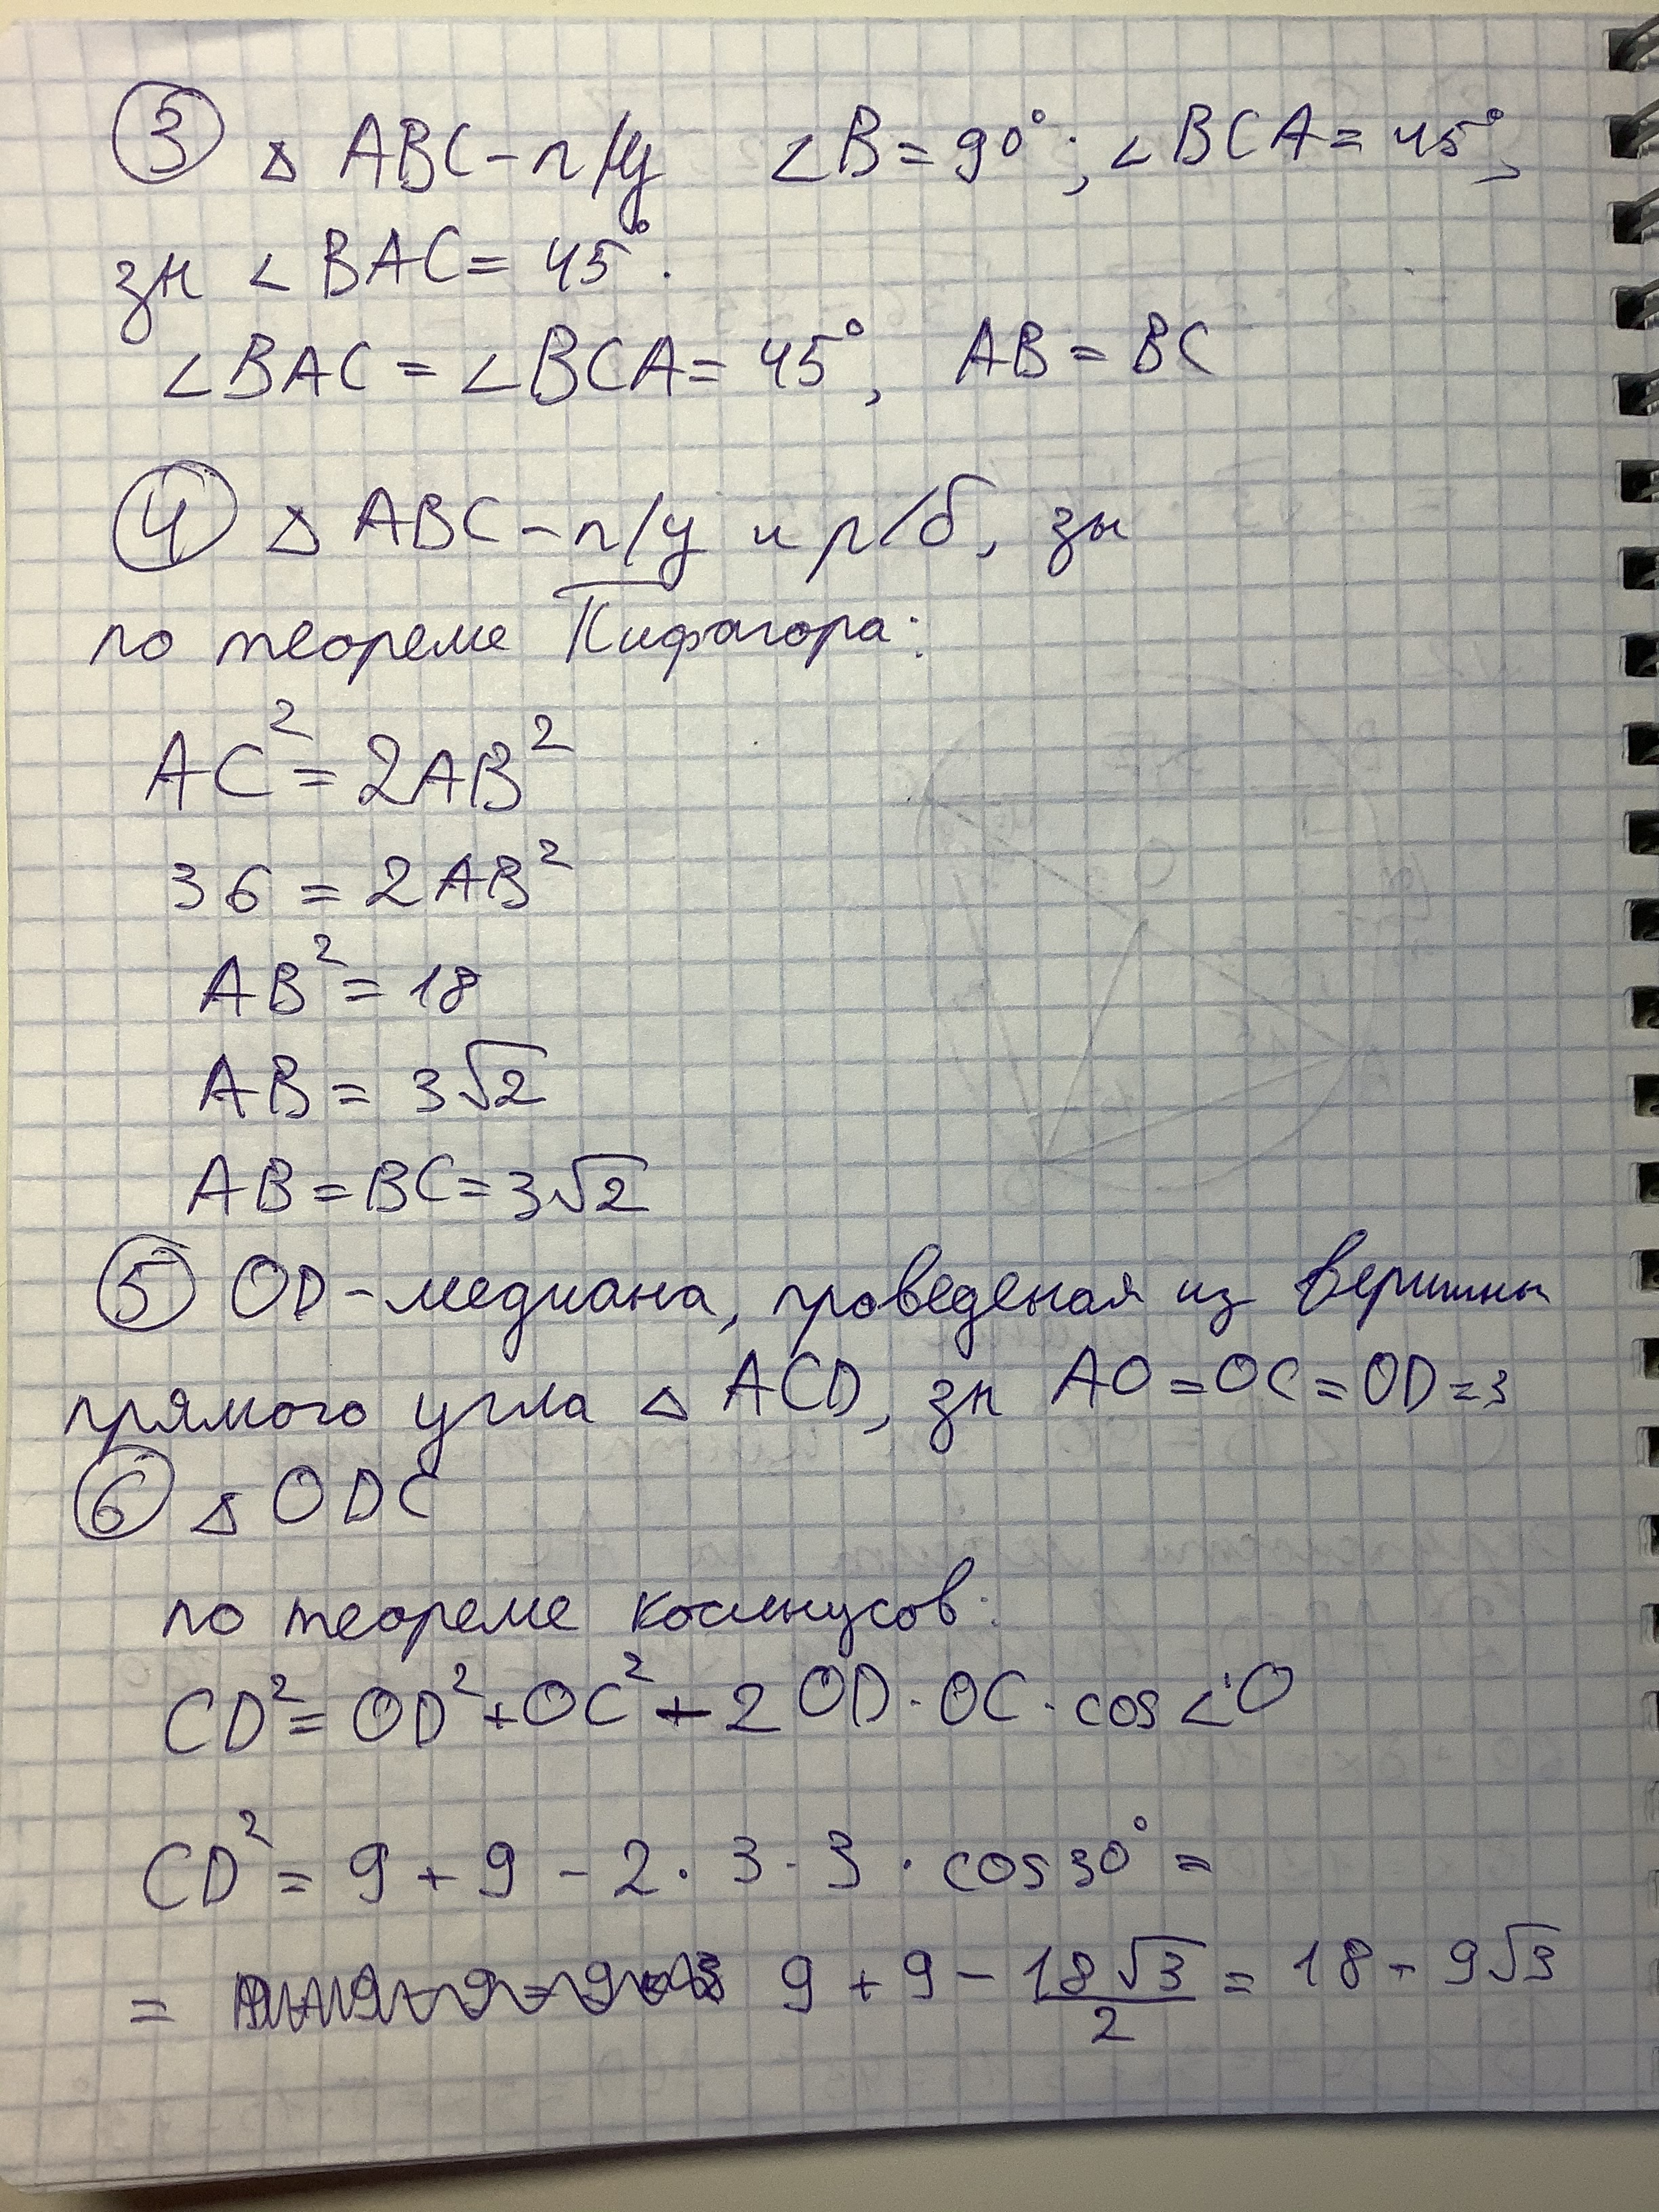 ③ △ ABC – п/у ∠B = 90°; ∠BCA = 45°,
зн ∠BAC = 45°.
∠BAC = ∠BCA = 45°, AB = BC
④ △ ABC – п/у и р/б, зн
по теореме Пифагора:
AC² = 2AB²
36 = 2AB²
AB² = 18
AB = 3√2
AB = BC = 3√2
⑤ OD – медиана, проведеная из вершины
прямого угла △ ACD, зн AO = OC = OD = 3
⑥ △ ODC
по теореме косинусов:
CD² = OD² + OC² - 2 OD · OC · cos ∠O
CD² = 9 + 9 - 2 · 3 · 3 · cos 30° =
= 9 + 9 - 18√3/2 = 18 - 9√3